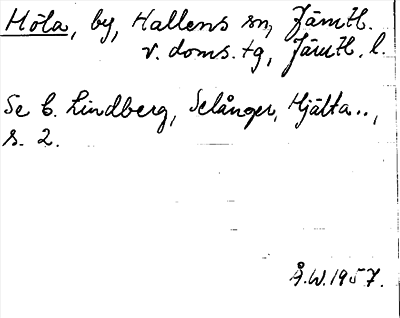 Höla, by, Hallens sn, Jämtl.
v. doms. tg, Jämtl. l.
Se C. Lindberg, Selånger, Hjälta..,
s. 2.
Å.W. 1957.